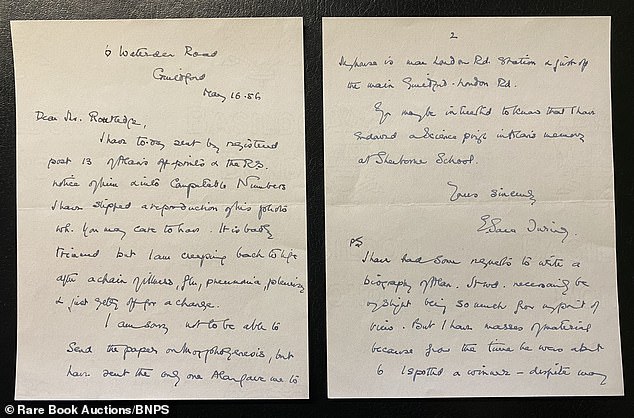 6 Waterden Road
Guildford
May 16.56
Dear Mr. Routledge,
I have to-day sent by registered
post 13 of Alan's offprints & the R.S.
notice of him & into Computable Numbers
I have slipped a reproduction of his photo
wh. you may care to have. It is badly
trimmed but I am creeping back to life
after a chain of illness, flu, pneumonia, pleurisy
& just getting off for a change.
I am sorry not to be able to
send the paper on Morphogenesis, but
have sent the only one Alan gave me to
2
My house is near London Rd. Station & just off
the main Guildford-London Rd.
You may be interested to know that I have
endowed a Science prize in Alan's memory
at Sherborne School.
Yours sincerely
Turing.
PS
I have had some requests to write a
biography of Alan. It wd. necessarily be
being so much from my point of
view. But I have masses of material
because from the time he was about
6 I spotted a winner – despite many
© Rare Book Auctions/BNPS